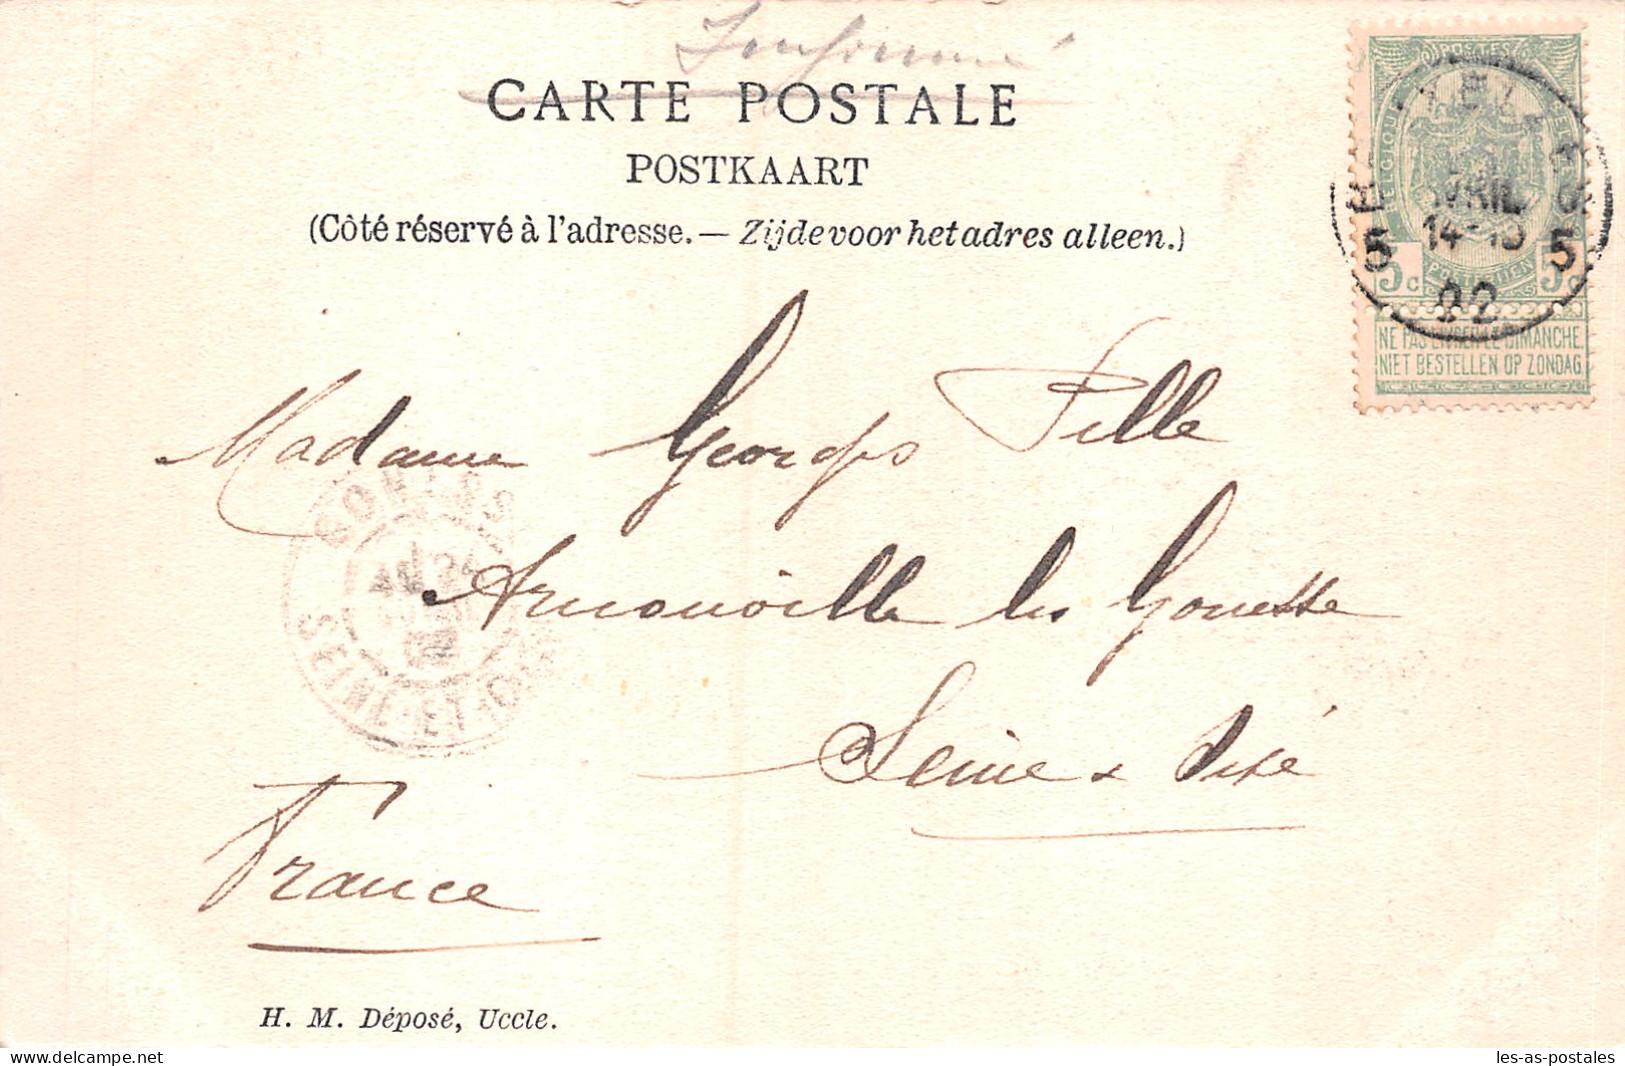 Imprimé
CARTE POSTALE
POSTKAART
(Côté réservé à l'adresse. — Zijde voor het adres alleen.)
POSTES
BELGIQUE
14-15
5 5
5c 5c
POSTERIJEN
22
NE PAS LIVRER LE DIMANCHE
NIET BESTELLEN OP ZONDAG
Madame Georges Pille
Arnouville les Gonesse
Seine & Oise
GONESSE
SEINE-ET-OISE
France
H. M. Déposé, Uccle.
delcampe.net
les-as-postales